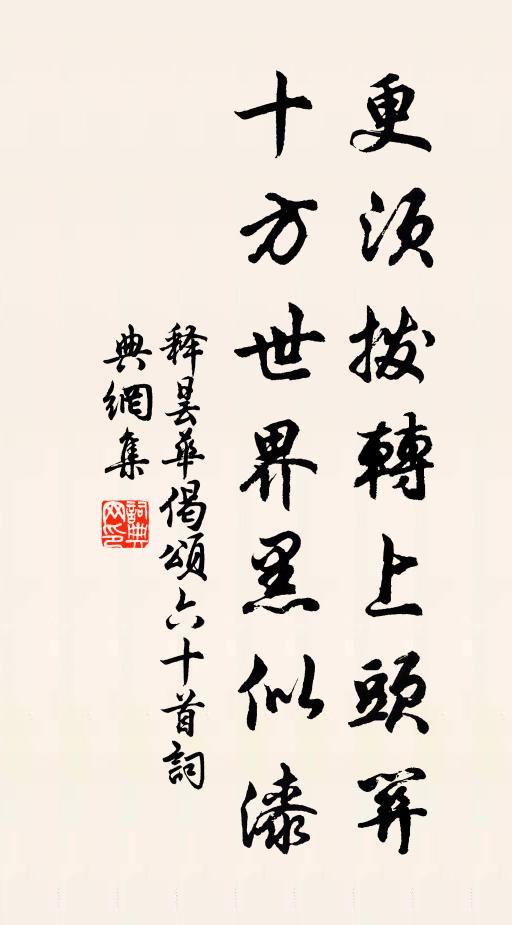 更須撥轉上頭關
十方世界黑似漆
釋曇華偈頌六十首詞
典網集
詞典網印